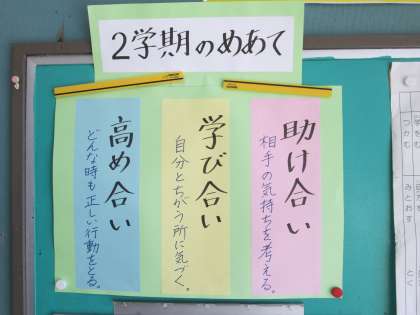 2学期のめあて
助け合い
相手の気持ちを考える。
学び合い
自分とちがう所に気づく。
高め合い
どんな時も正しい行動をとる。
つかむ
みとおす
とく